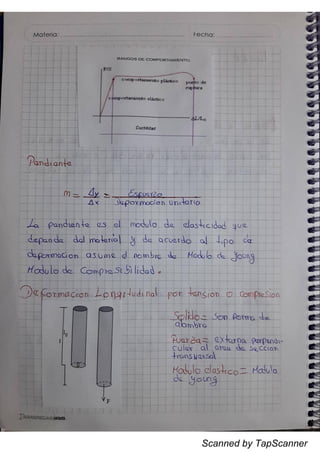 Materia:
Fecha:
RANGOS DE COMPORTAMIENTO
F/S
comportamiento plástico
punto de
ruptura
comportamiento elástico
ΔL/Lo
Cantidad
Pendiente
m = Δy = Esfuerzo
Δx deformacion unitario
La pendiente es el modulo de elasticidad que
depende del material y de acuerdo al tipo de
deformación asume el nombre de Modulo de Joung
Modulo de Compresibilidad.
Deformacion Longitudinal por tension o compresion
Solido= Son Forma de
alambre
Fuerza= externa perpendi-
cular al area de seccion
transversal
Modulo elastico= Modulo
de young
l
l₀
F
Scanned by TapScanner